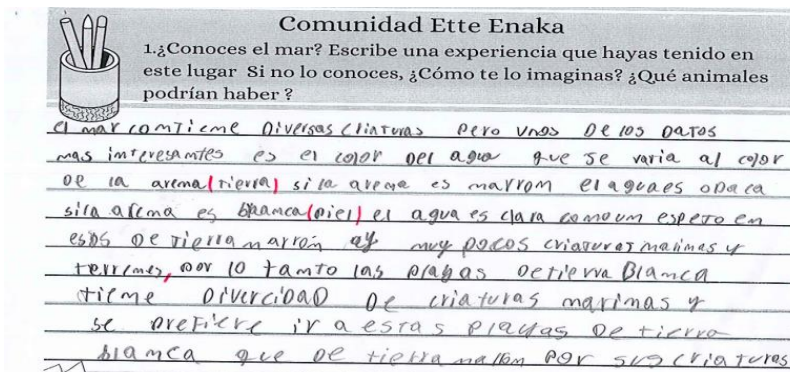 Comunidad Ette Enaka
1.¿Conoces el mar? Escribe una experiencia que hayas tenido en
este lugar Si no lo conoces, ¿Cómo te lo imaginas? ¿Qué animales
podrían haber ?
el mar comtieme Diversas cliaturas Pero unos De los Datos
mas imteresamtes es el color Del agua que se varia al color
De la arema(tierra) si la areme es marrom el aguaes opaca
sila arema es blamca(piel) el agua es clara comoum espero em
esos De tierra marrón ay muy pocos criaturas marimas y
terrimes, por lo tamto las playas Detierra Blamca
tieme DivercidaD De criaturas marimas y
se prefiere ir a estas playas De tierra
blamca que De tierra malom por sus criatures